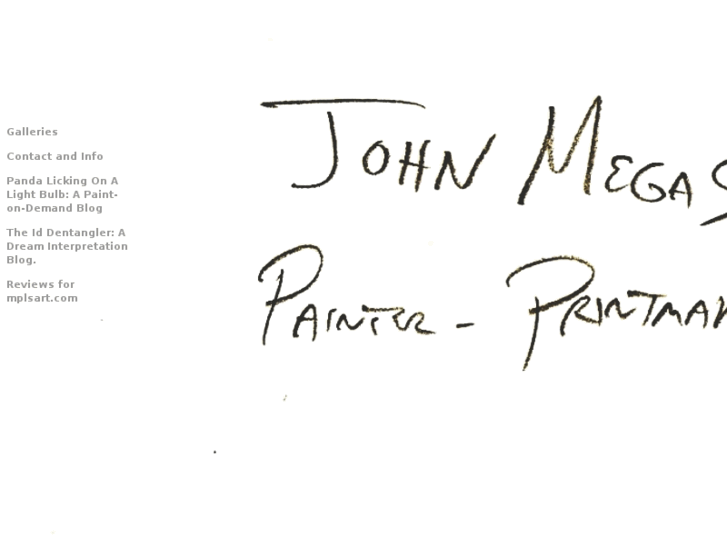 Galleries
Contact and Info
Panda Licking On A
Light Bulb: A Paint-
on-Demand Blog
The Id Dentangler: A
Dream Interpretation
Blog.
Reviews for
mplsart.com
JOHN MEGAS
PAINTER - PRINTMAK